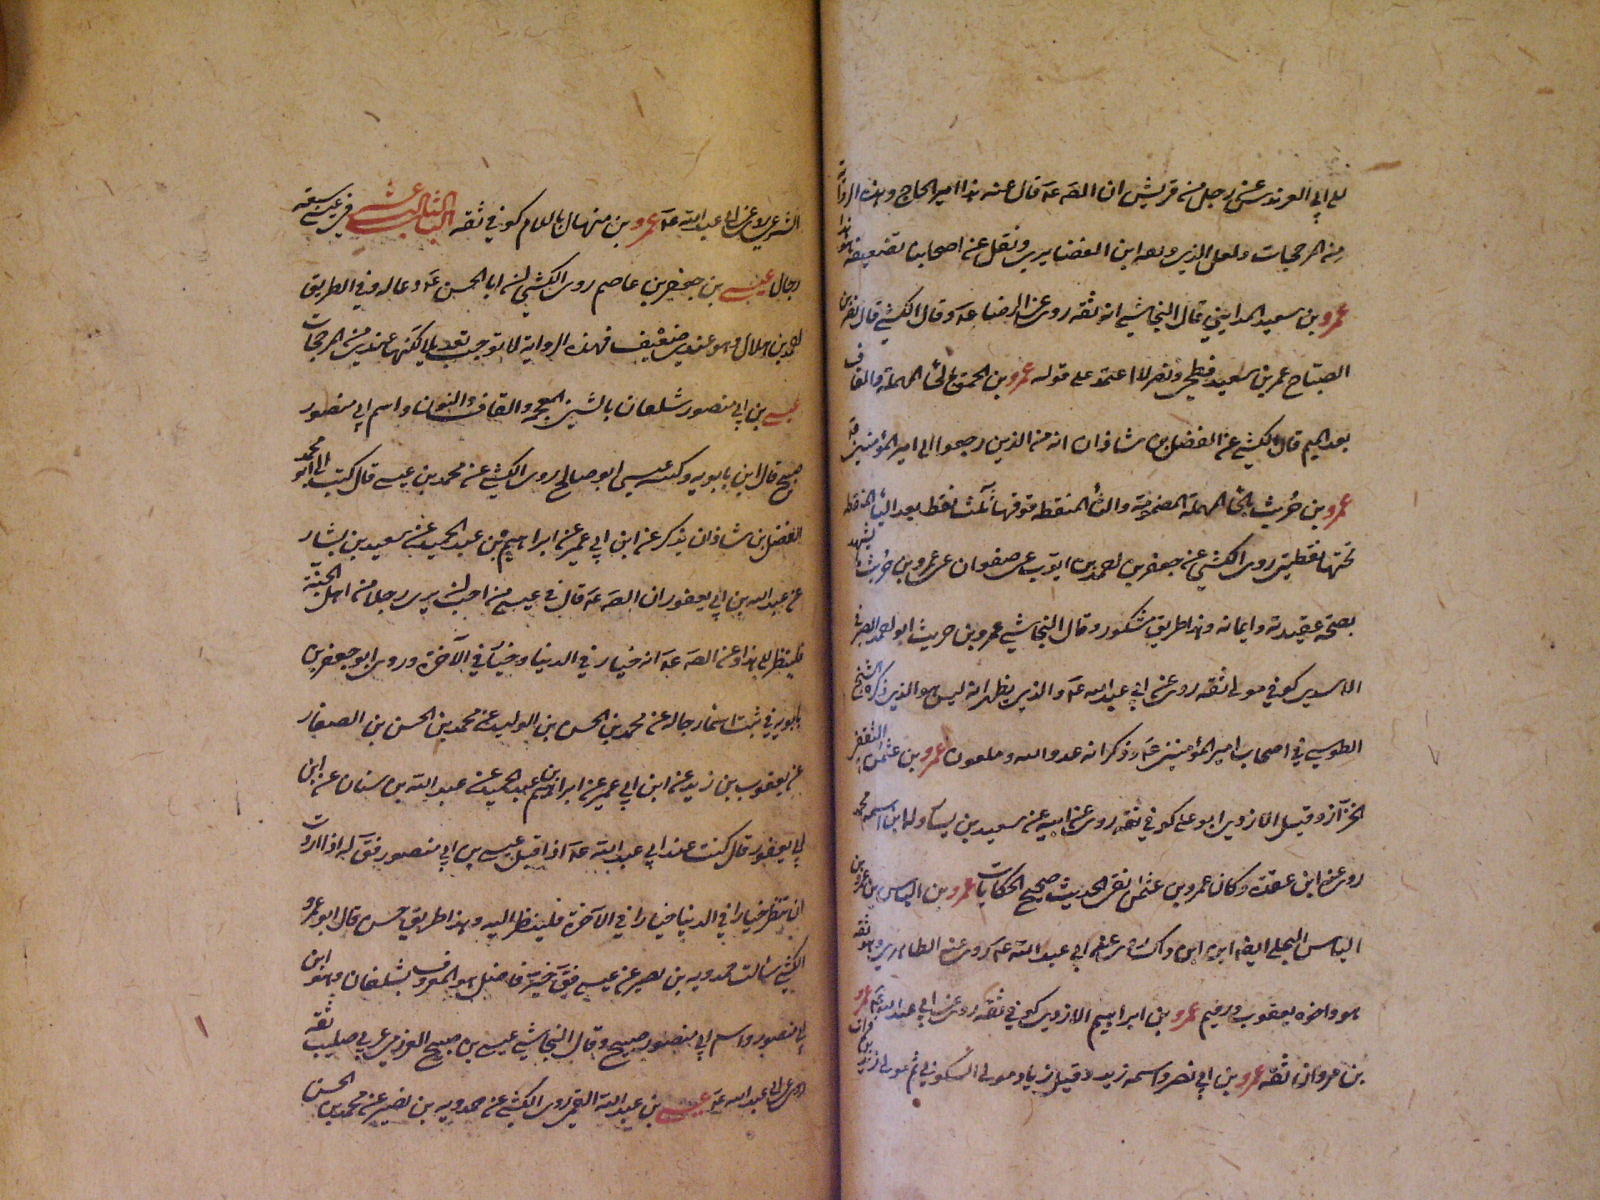 علي ابي العرندس عن رجل من قريش ان الصه عه قال عنه هذا امير الحاج وهذه الرواية
من المرجحات ولعل الذي وجد ابن الغضايري ونقل عن اصحابنا تضعيفه
عمرو بن سعيد المدايني قال النجاشي انه ثقه روى عن الرضا عه وقال الكشي قال نصر بن
الصباح عمر بن سعيد فطحي ونصر لا اعتمد على قوله عمرو بن الحمق بالحاء المهملة والقاف
بعد الميم قال الكشي عن الفضل بن شاذان انه من الذين رجعوا الى امير المؤمنين
عمرو بن حريث بالحاء المهملة المضمومة والثاء المنقطه فوقها ثلث نقط بعد الياء المنقطه
تحتها نقطتين روى الكشي عن جعفر بن احمد بن ايوب عن صفوان عن عمرو بن حريث يشهد
بصحة عقيدته وايمانه وهذا طريق مشكور وقال النجاشي عمرو بن حريث ابو احمد الصيرفي
الاسدي كوفي مولى ثقه روى عن ابي عبد الله عه والذي يظهر انه ليس هو الذي ذكره الشيخ
الطوسي في اصحاب امير المؤمنين عه وذكر انه عدو الله وملعون عمرو بن عثمن الثقفي
الخزاز وقيل الازدي ابو علي كوفي ثقه روى عن ابيه عن سعيد بن يسار وله ابن اسمه محمد
روى عنه ابن عقدة وكان عمرو بن عثمن نقي الحديث صحيح الحكايات عمرو بن الياس بن عمرو بن
الياس البجلي ايضه ابن ابن ذاك روى عن ابي عبد الله عه روى عنه الطاطري وهو ثقه
هو واخوه يعقوب ورقيم عمرو بن ابراهيم الازدي كوفي ثقه روى عن ابي عبد الله عه عمرو
بن مروان ثقه عمرو بن ابي نصر واسمه زيد وقيل زياد مولى السكوني ثم مولى زيد بن فرات
الشرعبي روى عن ابي عبد الله عه عمرو بن منهال باللام كوفي ثقه الباب الثالث عشر في عيسى سبعة
رجال عيسى بن جعفر بن عاصم روى الكشي ان ابا الحسن عه دعا له وفي الطريق
احمد بن هلال وهو عندي ضعيف فهذه الرواية لا توجب تعديلا لكنها عندي من المرجحات
عيسى بن ابي منصور شلقان بالشين المعجمة والقاف والنون واسم ابي منصور
صبيح قال ابن بابويه وكنيه عيسى ابو صالح روى الكشي عن محمد بن عيسى قال كتب الى ابو محمد
الفضل بن شاذان يذكر عن ابن ابي عمير عن ابراهيم بن عبد الحميد عن سعيد بن يسار
عن عبد الله بن ابي يعفور ان الصه عه قال في عيسى من احب ان يرى رجلا من اهل الجنة
فلينظر الى هذا وعن الصه عه انه خيار في الدنيا وخيار في الآخرة وروى ابو جعفر بن
بابويه في ثبت اسماء رجاله عن محمد بن الحسن بن الوليد عن محمد بن الحسن بن الصفار
عن يعقوب بن زيد عن ابن ابي عمير عن ابراهيم بن عبد الحميد عن عبد الله بن سنان عن ابن
ابي يعفور قال كنت عند ابي عبد الله عه اذ اقبل عيسى بن ابي منصور فق له اذا اردت
ان تنظر خيارا في الدنيا خيارا في الآخرة فلينظر اليه وهذا طريق حسن قال ابو عمرو
الكشي سالت حمدويه بن نصير عن عيسى فق خير فاضل هو المعروف بشلقان وهو ابن
ابي منصور واسم ابي منصور صبيح وقال النجاشي عيسى بن صبيح العرزمي عربي صليب ثقه
روى عن ابي عبد الله عه عيسى بن عبد الله القمي روى الكشي عن حمدويه بن نصير عن محمد بن الحسن